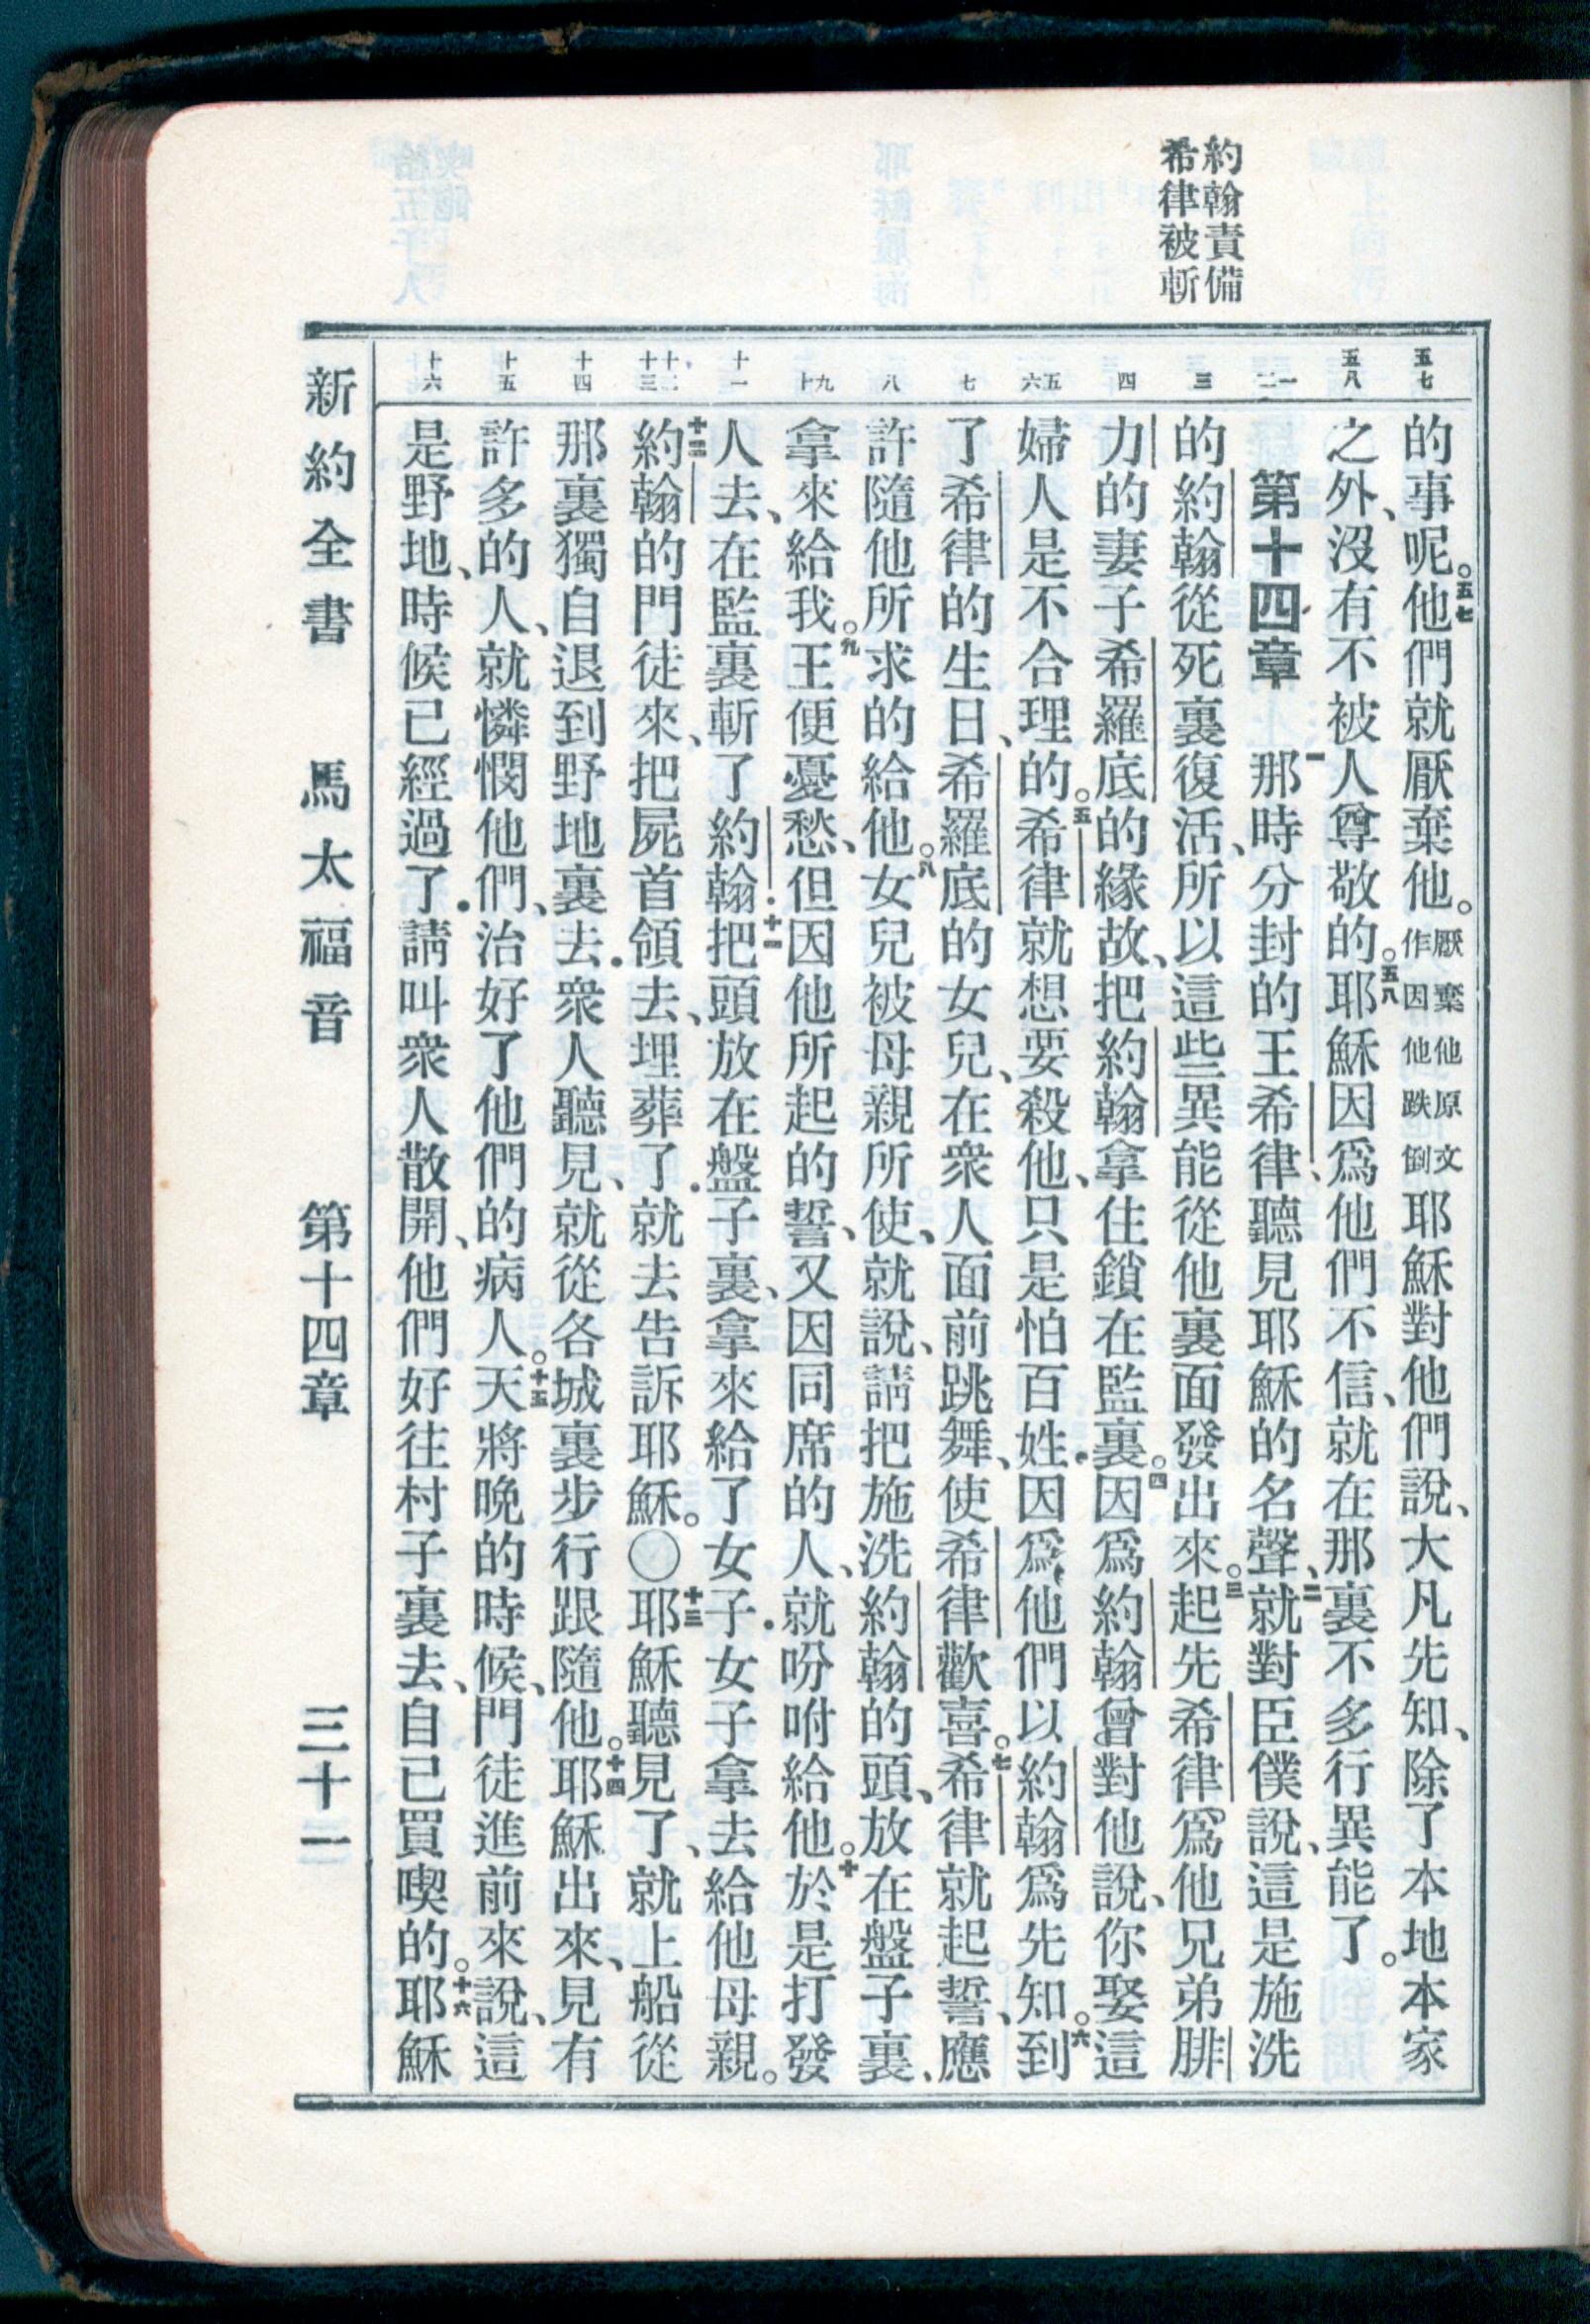 約翰責備
希律被斬
五七
五八
一 二
三
四
五 六
七
八
九 十
十一
十二 十三
十四
十五
十六
的事呢。五七他們就厭棄他。厭棄他原文作因他跌倒耶穌對他們說、大凡先知、除了本地本家
之外、沒有不被人尊敬的。五八耶穌因爲他們不信、就在那裏不多行異能了。
第十四章 一那時分封的王希律、聽見耶穌的名聲、二就對臣僕說、這是施洗
的約翰從死裏復活、所以這些異能從他裏面發出來。三起先希律爲他兄弟腓
力的妻子希羅底的緣故、把約翰拿住鎖在監裏。四因爲約翰曾對他說、你娶這
婦人是不合理的。五希律就想要殺他、只是怕百姓．因爲他們以約翰爲先知。六到
了希律的生日、希羅底的女兒、在衆人面前跳舞、使希律歡喜。七希律就起誓、應
許隨他所求的給他。八女兒被母親所使、就說、請把施洗約翰的頭、放在盤子裏、
拿來給我。九王便憂愁、但因他所起的誓、又因同席的人、就吩咐給他。十於是打發
人去、在監裏斬了約翰．十一把頭放在盤子裏、拿來給了女子．女子拿去給他母親。
十二約翰的門徒來、把屍首領去、埋葬了．就去告訴耶穌。〇十三耶穌聽見了、就上船從
那裏獨自退到野地裏去．衆人聽見、就從各城裏步行跟隨他。十四耶穌出來、見有
許多的人、就憐憫他們、治好了他們的病人。十五天將晚的時候、門徒進前來說、這
是野地、時候已經過了．請叫衆人散開、他們好往村子裏去、自己買喫的。十六耶穌
新約全書 馬太福音 第十四章 三十一